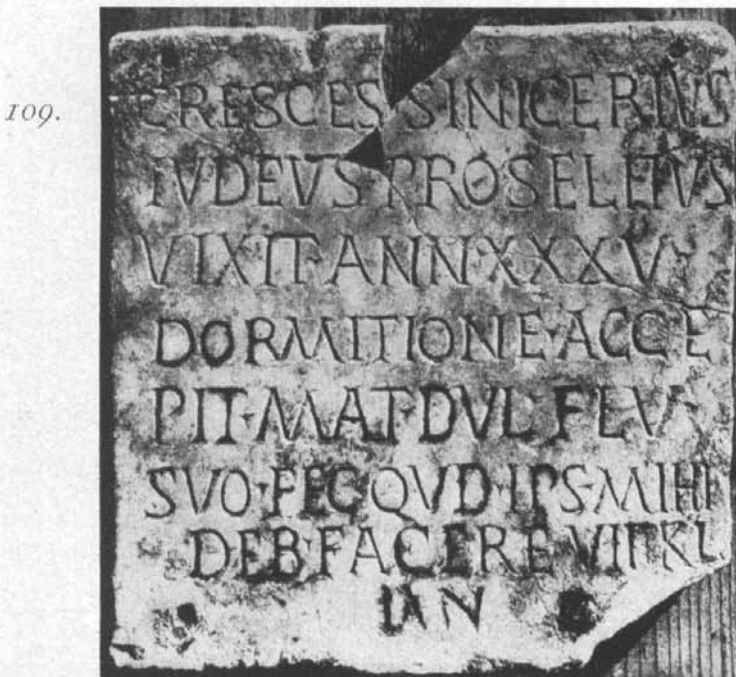 109.
CRESCES SINICERIVS
IVDEVS PROSELITVS
VIXIT·ANN·XXXV·
DORMITIONE·ACCE
PIT·MAT·DVL FLV·
SVO·FEC QVD·IPS·MIHI
DEB·FACERE VIII·KL
IAN